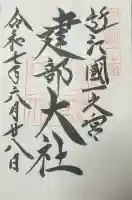 近江國一之宮
建部大社
令和七年六月廿八日